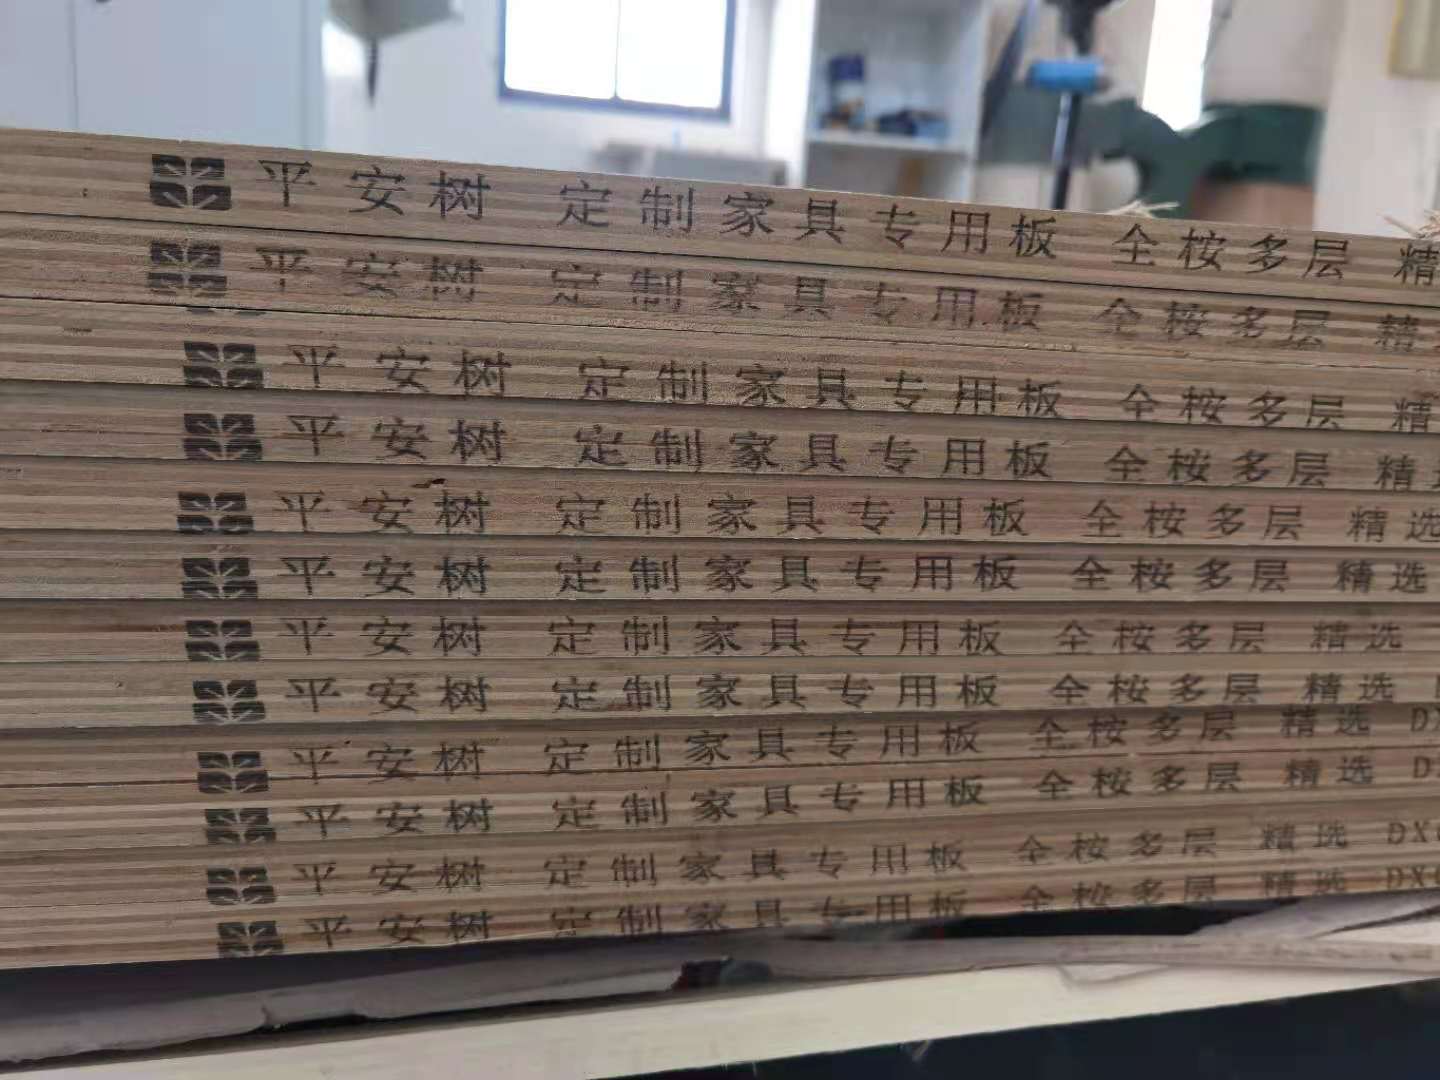 平安树 定制家具专用板 全桉多层 精
平安树 定制家具专用板 全桉多层 精
平安树 定制家具专用板 全桉多层 精
平安树 定制家具专用板 全桉多层 精
平安树 定制家具专用板 全桉多层 精选
平安树 定制家具专用板 全桉多层 精选
平安树 定制家具专用板 全桉多层 精选
平安树 定制家具专用板 全桉多层 精选
平安树 定制家具专用板 全桉多层 精选 DX
平安树 定制家具专用板 全桉多层 精选 D
平安树 定制家具专用板 全桉多层 精选 DX
平安树 定制家具专用板 全桉多层 精选 DX